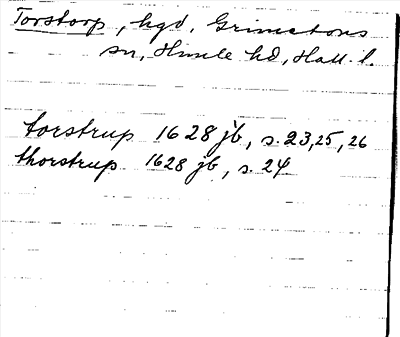 Torstorp, hgd, Grimetons
sn, Himle hd, Hall. l.
torstrup 1628 jb, s. 23, 25, 26
thorstrup 1628 jb, s. 24